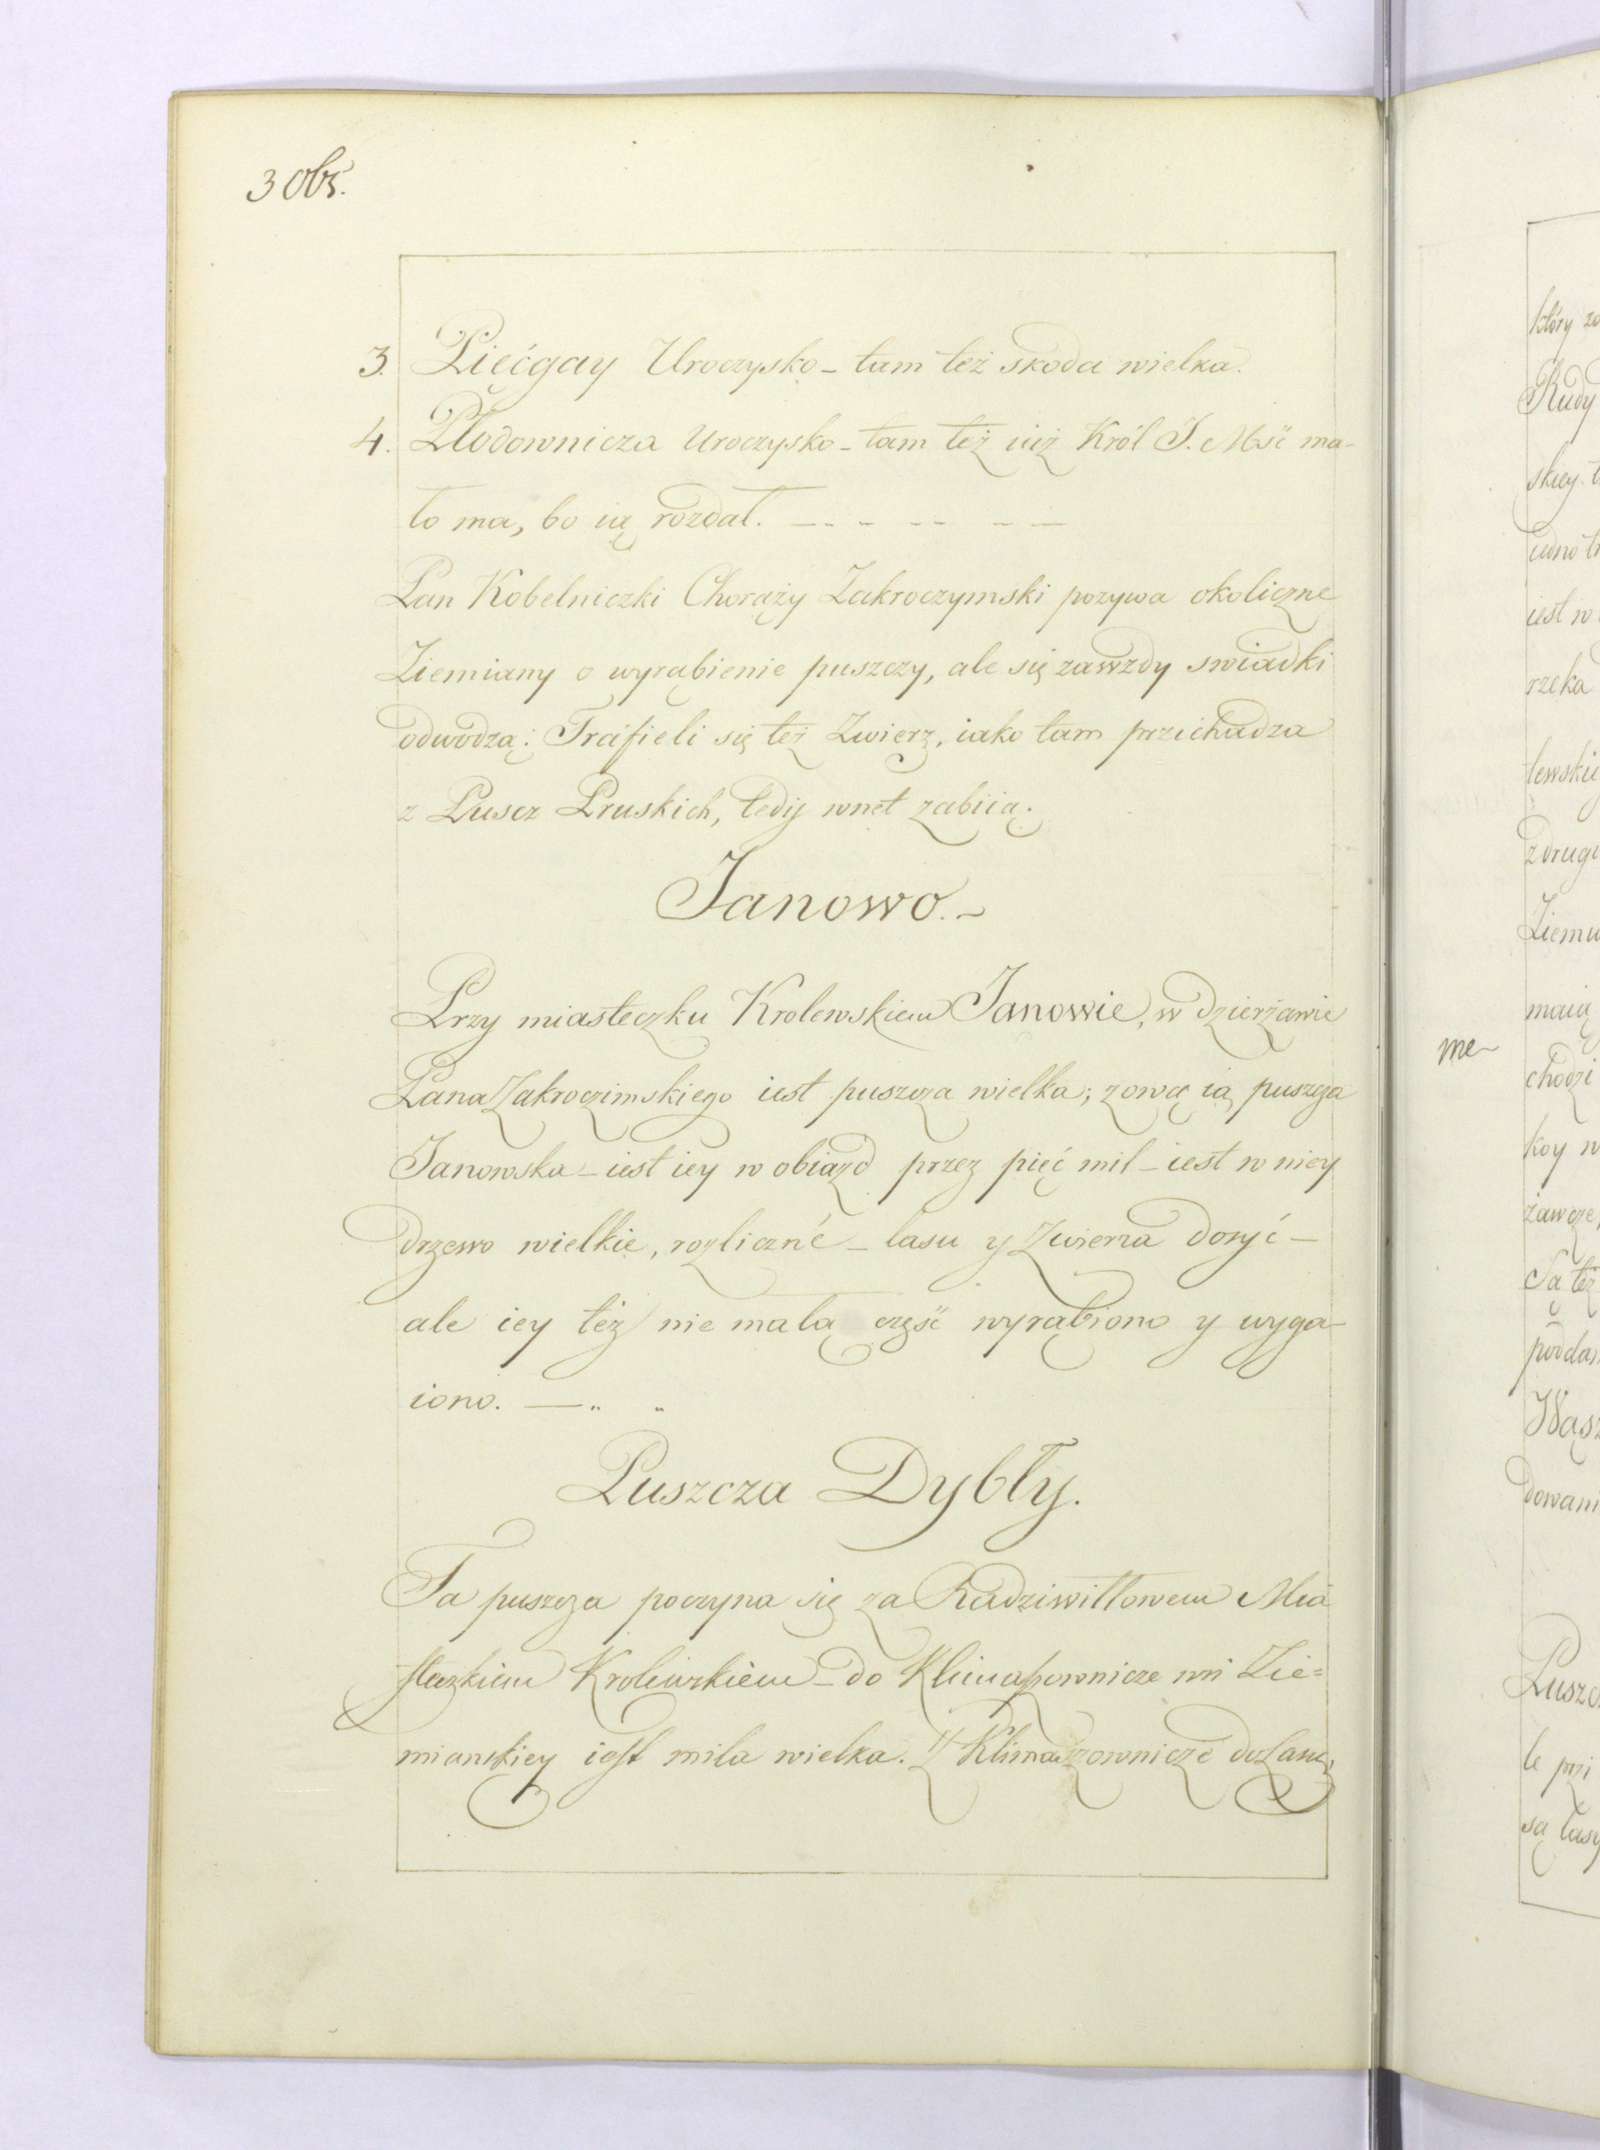 3 Obs.
3. Pięćgay Uroczysko - tam też skoda wielka.
4. Płodownicza Uroczysko - tam też iuż Król J. Mść ma-
ło ma, bo ią rozdał.
Pan Kobelniczki Chorąży Zakroczymski pozywa okoliczne
Ziemiany o wyrąbienie puszczy, ale się zawżdy swiadki
odwodzą: Trafieli się też Zwierz, iako tam przichadza
z Puscz Pruskich, tedij wnet zabiią.
Janowo. -
Przy miasteczku Krolewskiem Janowie, w dzierżawie
Pana Zakroczimskiego iest puszcza wielka; zową ią puszcza
Janowska - iest iey w obiazd przez pięć mil - iest w niey
drzewo wielkie, rozliczné - lasu y Zwierza dosyć -
ale iey też nie małą część wyrąbiono y wyga-
iono.
Puszcza Dybły.
Ta puszcza poczyna się za Radziwiłłowem Mia
steczkiem Krolewskiem - do Klimaszownicze wsi Zie=
mianskiey iest mila wielka. Z Klimaszownicze do Lasu,
który
Rudy
skiey
iedno
iest w
rzeka
z drugi
maią
me
chodzi
koy
Są też
są lasy